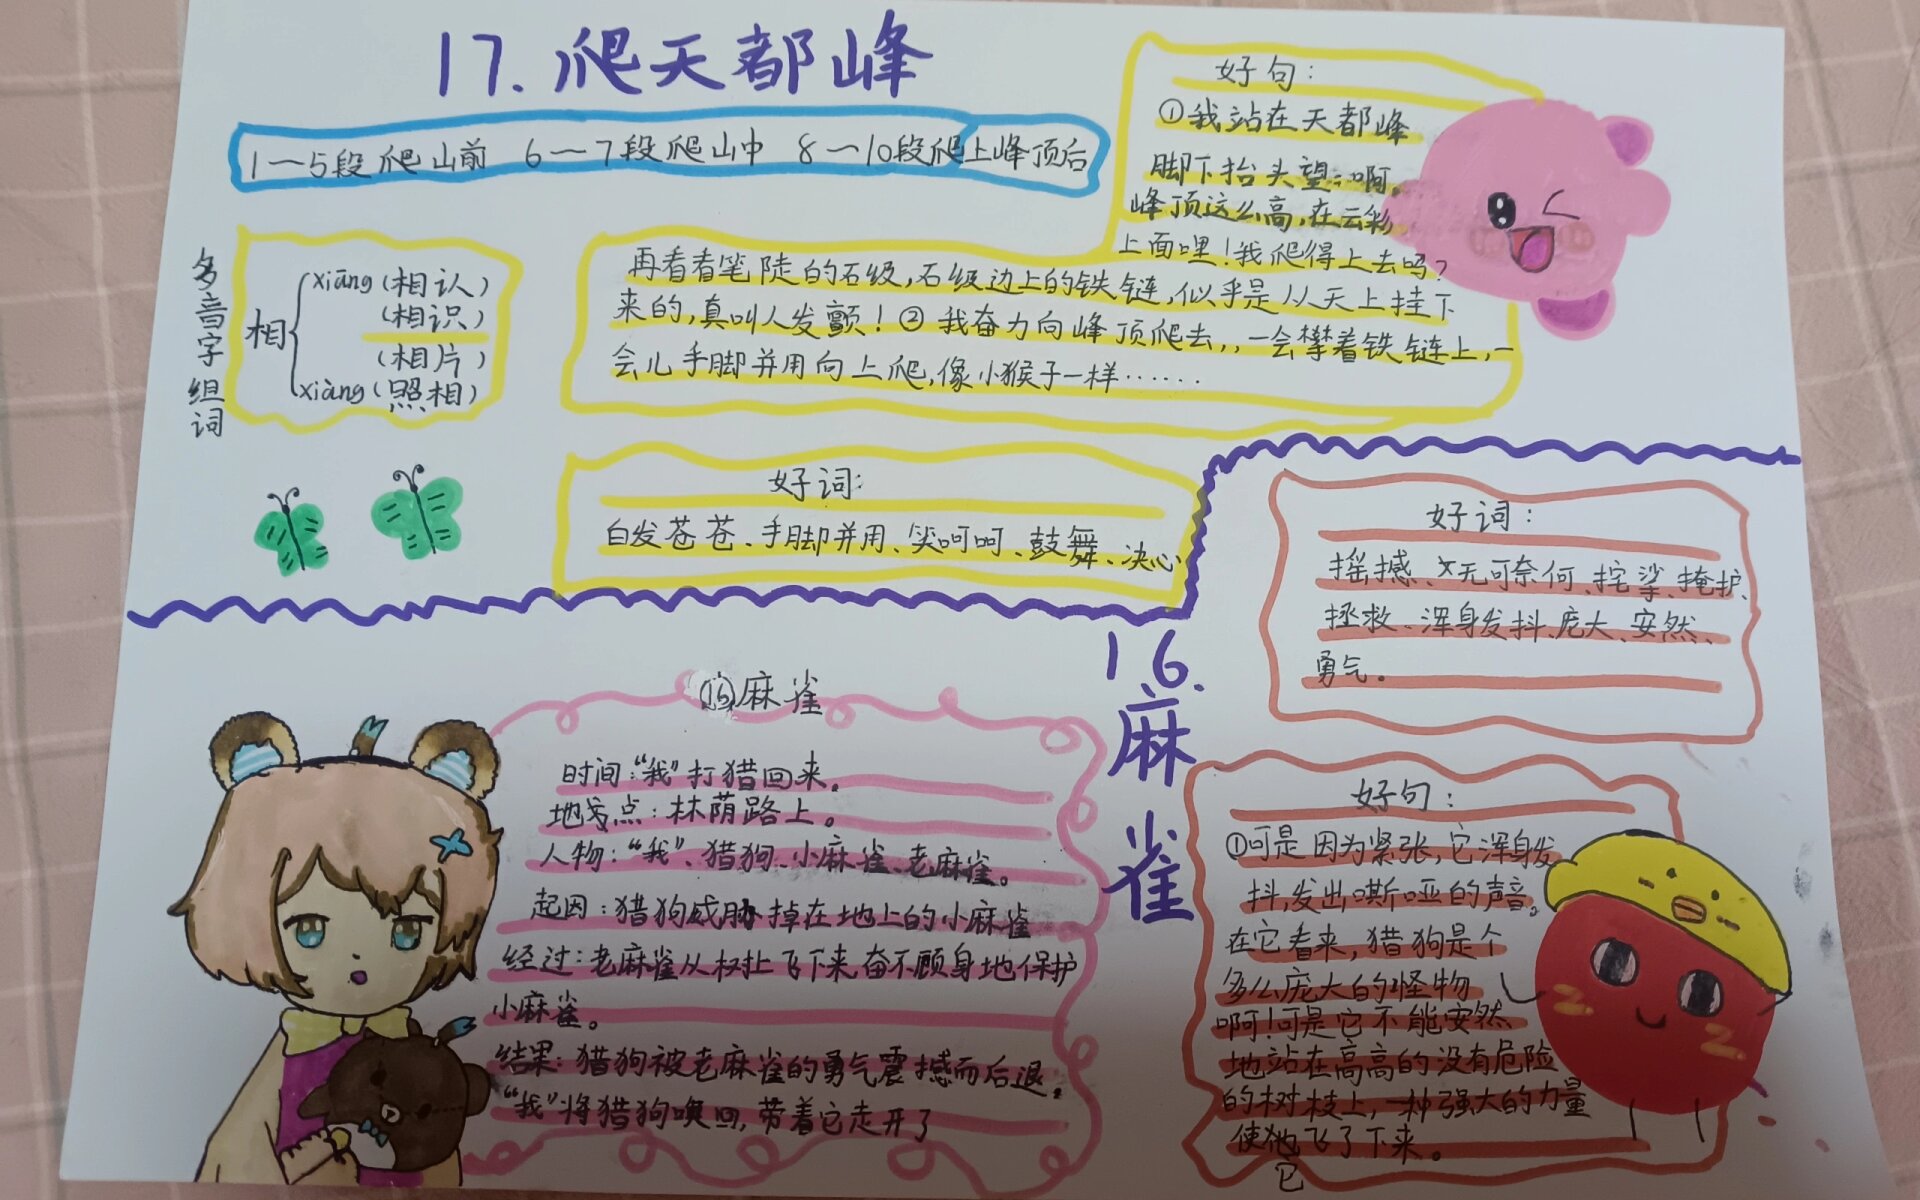 17.爬天都峰
1—5段爬山前 6—7段爬山中 8—10段爬上峰顶后
好句：
①我站在天都峰
脚下抬头望：啊，
峰顶这么高，在云彩
上面哩！我爬得上去吗？
再看看笔陡的石级，石级边上的铁链，似乎是从天上挂下
来的，真叫人发颤！②我奋力向峰顶爬去，，一会攀着铁链上，一
会儿手脚并用向上爬，像小猴子一样……
多音字组词
相
xiāng（相认）
（相识）
（相片）
xiàng（照相）
好词：
白发苍苍、手脚并用、笑呵呵、鼓舞、决心
16.麻雀
好词：
摇撼、无可奈何、挓挲、掩护、
拯救、浑身发抖、庞大、安然、
勇气。
⑯麻雀
时间：“我”打猎回来。
地点：林荫路上。
人物：“我”、猎狗、小麻雀、老麻雀。
起因：猎狗威胁掉在地上的小麻雀
经过：老麻雀从树上飞下来奋不顾身地保护
小麻雀。
结果：猎狗被老麻雀的勇气震撼而后退。
“我”将猎狗唤回，带着它走开了
好句：
①可是因为紧张，它浑身发
抖，发出嘶哑的声音。
在它看来，猎狗是个
多么庞大的怪物
啊！可是它不能安然
地站在高高的没有危险
的树枝上，一种强大的力量
使它飞了下来。